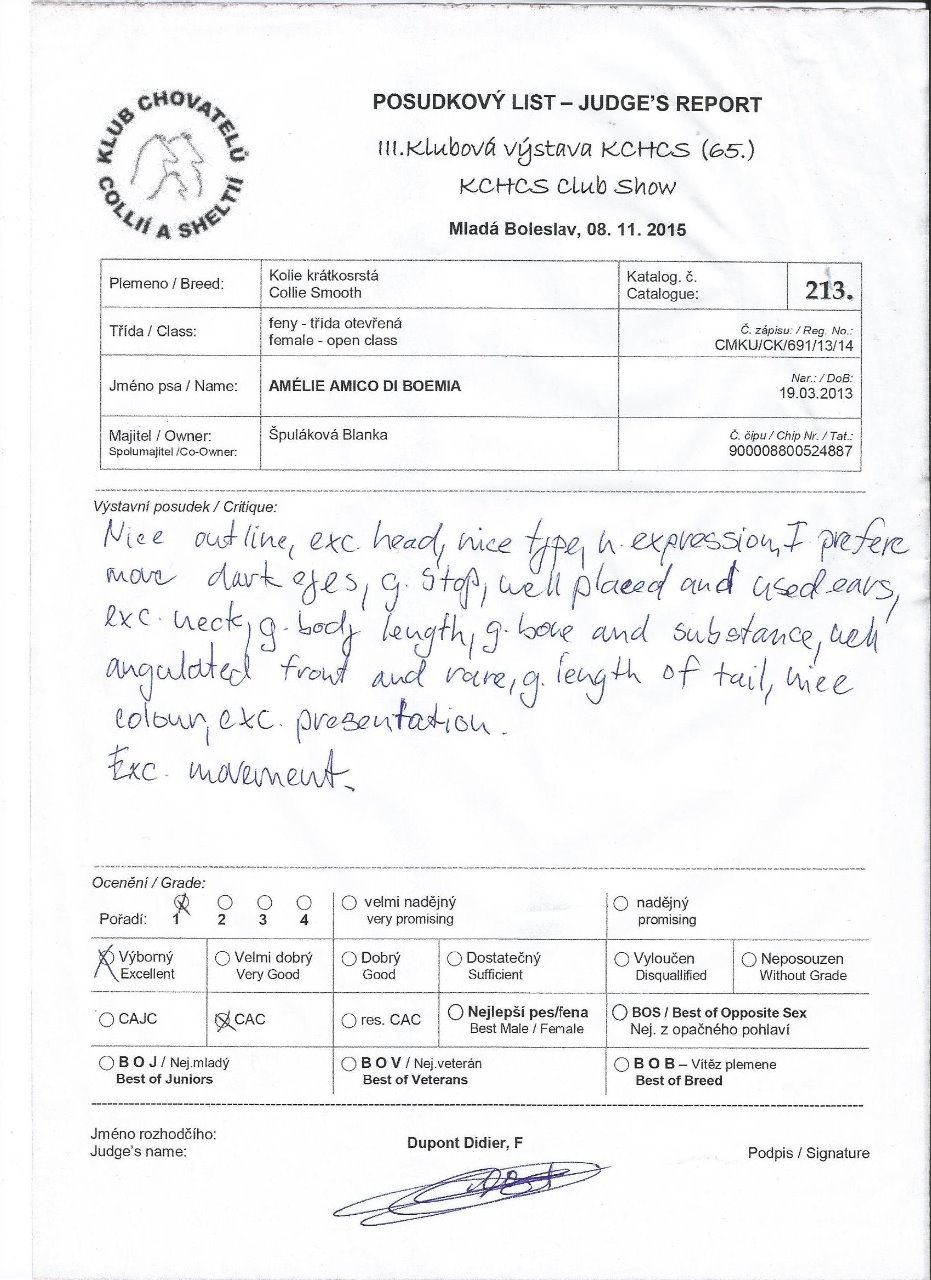 KLUB CHOVATELŮ
COLLIÍ A SHELTIÍ
POSUDKOVÝ LIST – JUDGE'S REPORT
III.Klubová výstava KCHCS (65.)
KCHCS Club Show
Mladá Boleslav, 08. 11. 2015
Plemeno / Breed:
Kolie krátkosrstá
Collie Smooth
Katalog. č.
Catalogue:
213.
Třída / Class:
feny - třída otevřená
female - open class
Č. zápisu: / Reg. No.:
CMKU/CK/691/13/14
Jméno psa / Name:
AMÉLIE AMICO DI BOEMIA
Nar.: / DoB:
19.03.2013
Majitel / Owner:
Spolumajitel /Co-Owner:
Špuláková Blanka
Č. čipu / Chip Nr. / Tat.:
900008800524887
Výstavní posudek / Critique:
Nice outline, exc. head, nice type, n. expression, I prefere
more dark eyes, g. stop, well placed and used ears,
exc. neck, g. body length, g. bone and substance, well
angulated front and rare, g. length of tail, nice
colour, exc. presentation.
Exc. movement.
Ocenění / Grade:
Pořadí: 1 2 3 4
velmi nadějný
very promising
nadějný
promising
Výborný
Excellent
Velmi dobrý
Very Good
Dobrý
Good
Dostatečný
Sufficient
Vyloučen
Disquallified
Neposouzen
Without Grade
CAJC
CAC
res. CAC
Nejlepší pes/fena
Best Male / Female
BOS / Best of Opposite Sex
Nej. z opačného pohlaví
B O J / Nej.mladý
Best of Juniors
B O V / Nej.veterán
Best of Veterans
B O B – Vítěz plemene
Best of Breed
Jméno rozhodčího:
Judge's name:
Dupont Didier, F
Podpis / Signature